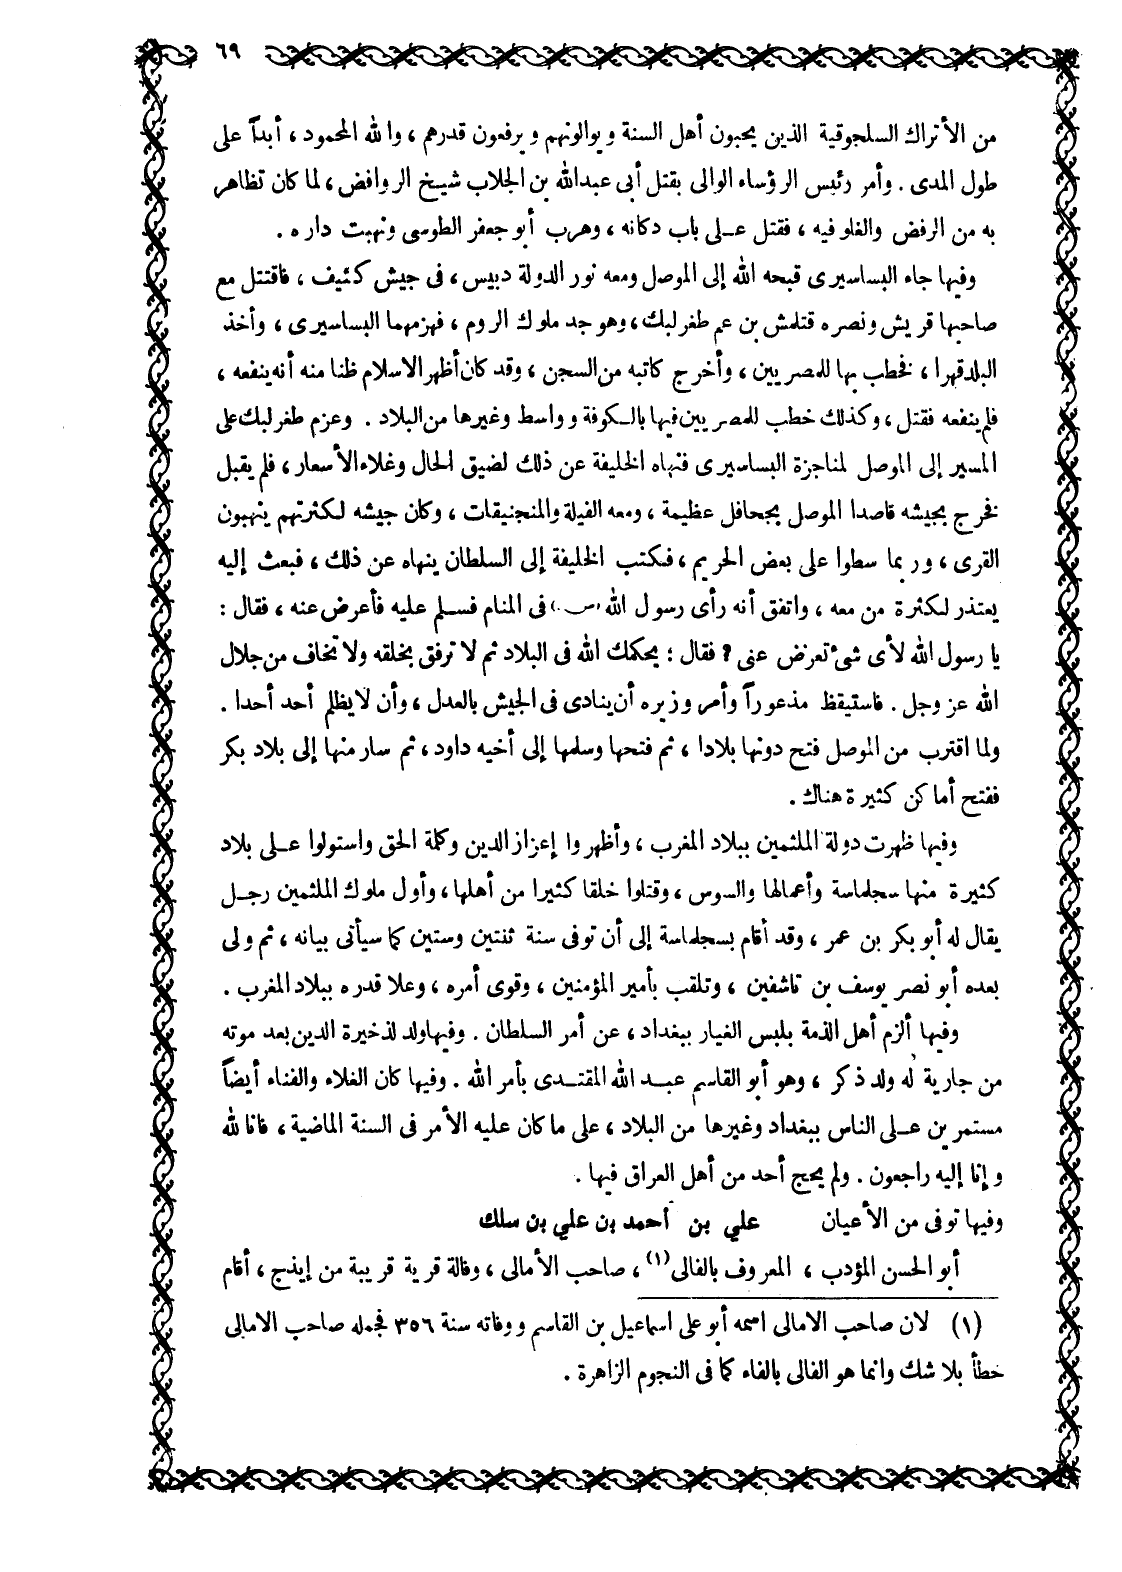 ٦٩
من الأتراك السلجوقية الذين يحبون أهل السنة ويوالونهم ويرفعون قدرهم ، والله المحمود ، أبداً على
طول المدى . وأمر رئيس الرؤساء الوالى بقتل أبى عبدالله بن الجلاب شيخ الروافض ، لما كان تظاهر
به من الرفض والغلو فيه ، فقتل على باب دكانه ، وهرب أبو جعفر الطوسى ونهبت داره .
وفيها جاء البساسيرى قبحه الله إلى الموصل ومعه نور الدولة دبيس ، فى جيش كثيف ، فاقتتل مع
صاحبها قريش ونصره قتلمش بن عم طغرلبك ، وهو جد ملوك الروم ، فهزمهما البساسيرى ، وأخذ
البلد قهرا ، فخطب بها للمصريين ، وأخرج كاتبه من السجن ، وقد كان أظهر الاسلام ظنا منه أنه ينفعه ،
فلم ينفعه فقتل ، وكذلك خطب للمصريين فيها بالكوفة وواسط وغيرها من البلاد . وعزم طغرلبك على
المسير إلى الموصل لمناجزة البساسيرى فنهاه الخليفة عن ذلك لضيق الحال وغلاء الأسعار ، فلم يقبل
فخرج بجيشه قاصدا الموصل بجحافل عظيمة ، ومعه الفيلة والمنجنيقات ، وكان جيشه لكثرتهم ينهبون
القرى ، وربما سطوا على بعض الحريم ، فكتب الخليفة إلى السلطان ينهاه عن ذلك ، فبعث إليه
يعتذر لكثرة من معه ، واتفق أنه رأى رسول الله (س) فى المنام فسلم عليه فأعرض عنه ، فقال :
يا رسول الله لأى شئ تعرض عنى ؟ فقال : يحكمك الله فى البلاد ثم لا ترفق بخلقه ولا تخاف من جلال
الله عز وجل . فاستيقظ مذعوراً وأمر وزيره أن ينادى فى الجيش بالعدل ، وأن لا يظلم أحد أحدا .
ولما اقترب من الموصل فتح دونها بلادا ، ثم فتحها وسلمها إلى أخيه داود ، ثم سار منها إلى بلاد بكر
ففتح أماكن كثيرة هناك .
وفيها ظهرت دولة الملثمين ببلاد المغرب ، وأظهروا إعزاز الدين وكلمة الحق واستولوا على بلاد
كثيرة منها سجلماسة وأعمالها والسوس ، وقتلوا خلقا كثيرا من أهلها ، وأول ملوك الملثمين رجل
يقال له أبو بكر بن عمر ، وقد أقام بسجلماسة إلى أن توفى سنة ثنتين وستين كما سيأتى بيانه ، ثم ولى
بعده أبو نصر يوسف بن تاشفين ، وتلقب بأمير المؤمنين ، وقوى أمره ، وعلا قدره ببلاد المغرب .
وفيها ألزم أهل الذمة بلبس الغيار ببغداد ، عن أمر السلطان . وفيها ولد لذخيرة الدين بعد موته
من جارية له ولد ذكر ، وهو أبو القاسم عبد الله المقتدى بأمر الله . وفيها كان الغلاء والفناء أيضاً
مستمرين على الناس ببغداد وغيرها من البلاد ، على ما كان عليه الأمر فى السنة الماضية ، فانا لله
وإنا إليه راجعون . ولم يحج أحد من أهل العراق فيها .
وفيها توفى من الأعيان علي بن أحمد بن علي بن سلك
أبو الحسن المؤدب ، المعروف بالفالى (١) ، صاحب الأمالى ، وفالة قرية قريبة من إيذج ، أقام
(١) لان صاحب الامالى اسمه أبو على اسماعيل بن القاسم ووفاته سنة ٣٥٦ فجعله صاحب الامالى
خطأ بلا شك وانما هو الفالى بالفاء كما فى النجوم الزاهرة .